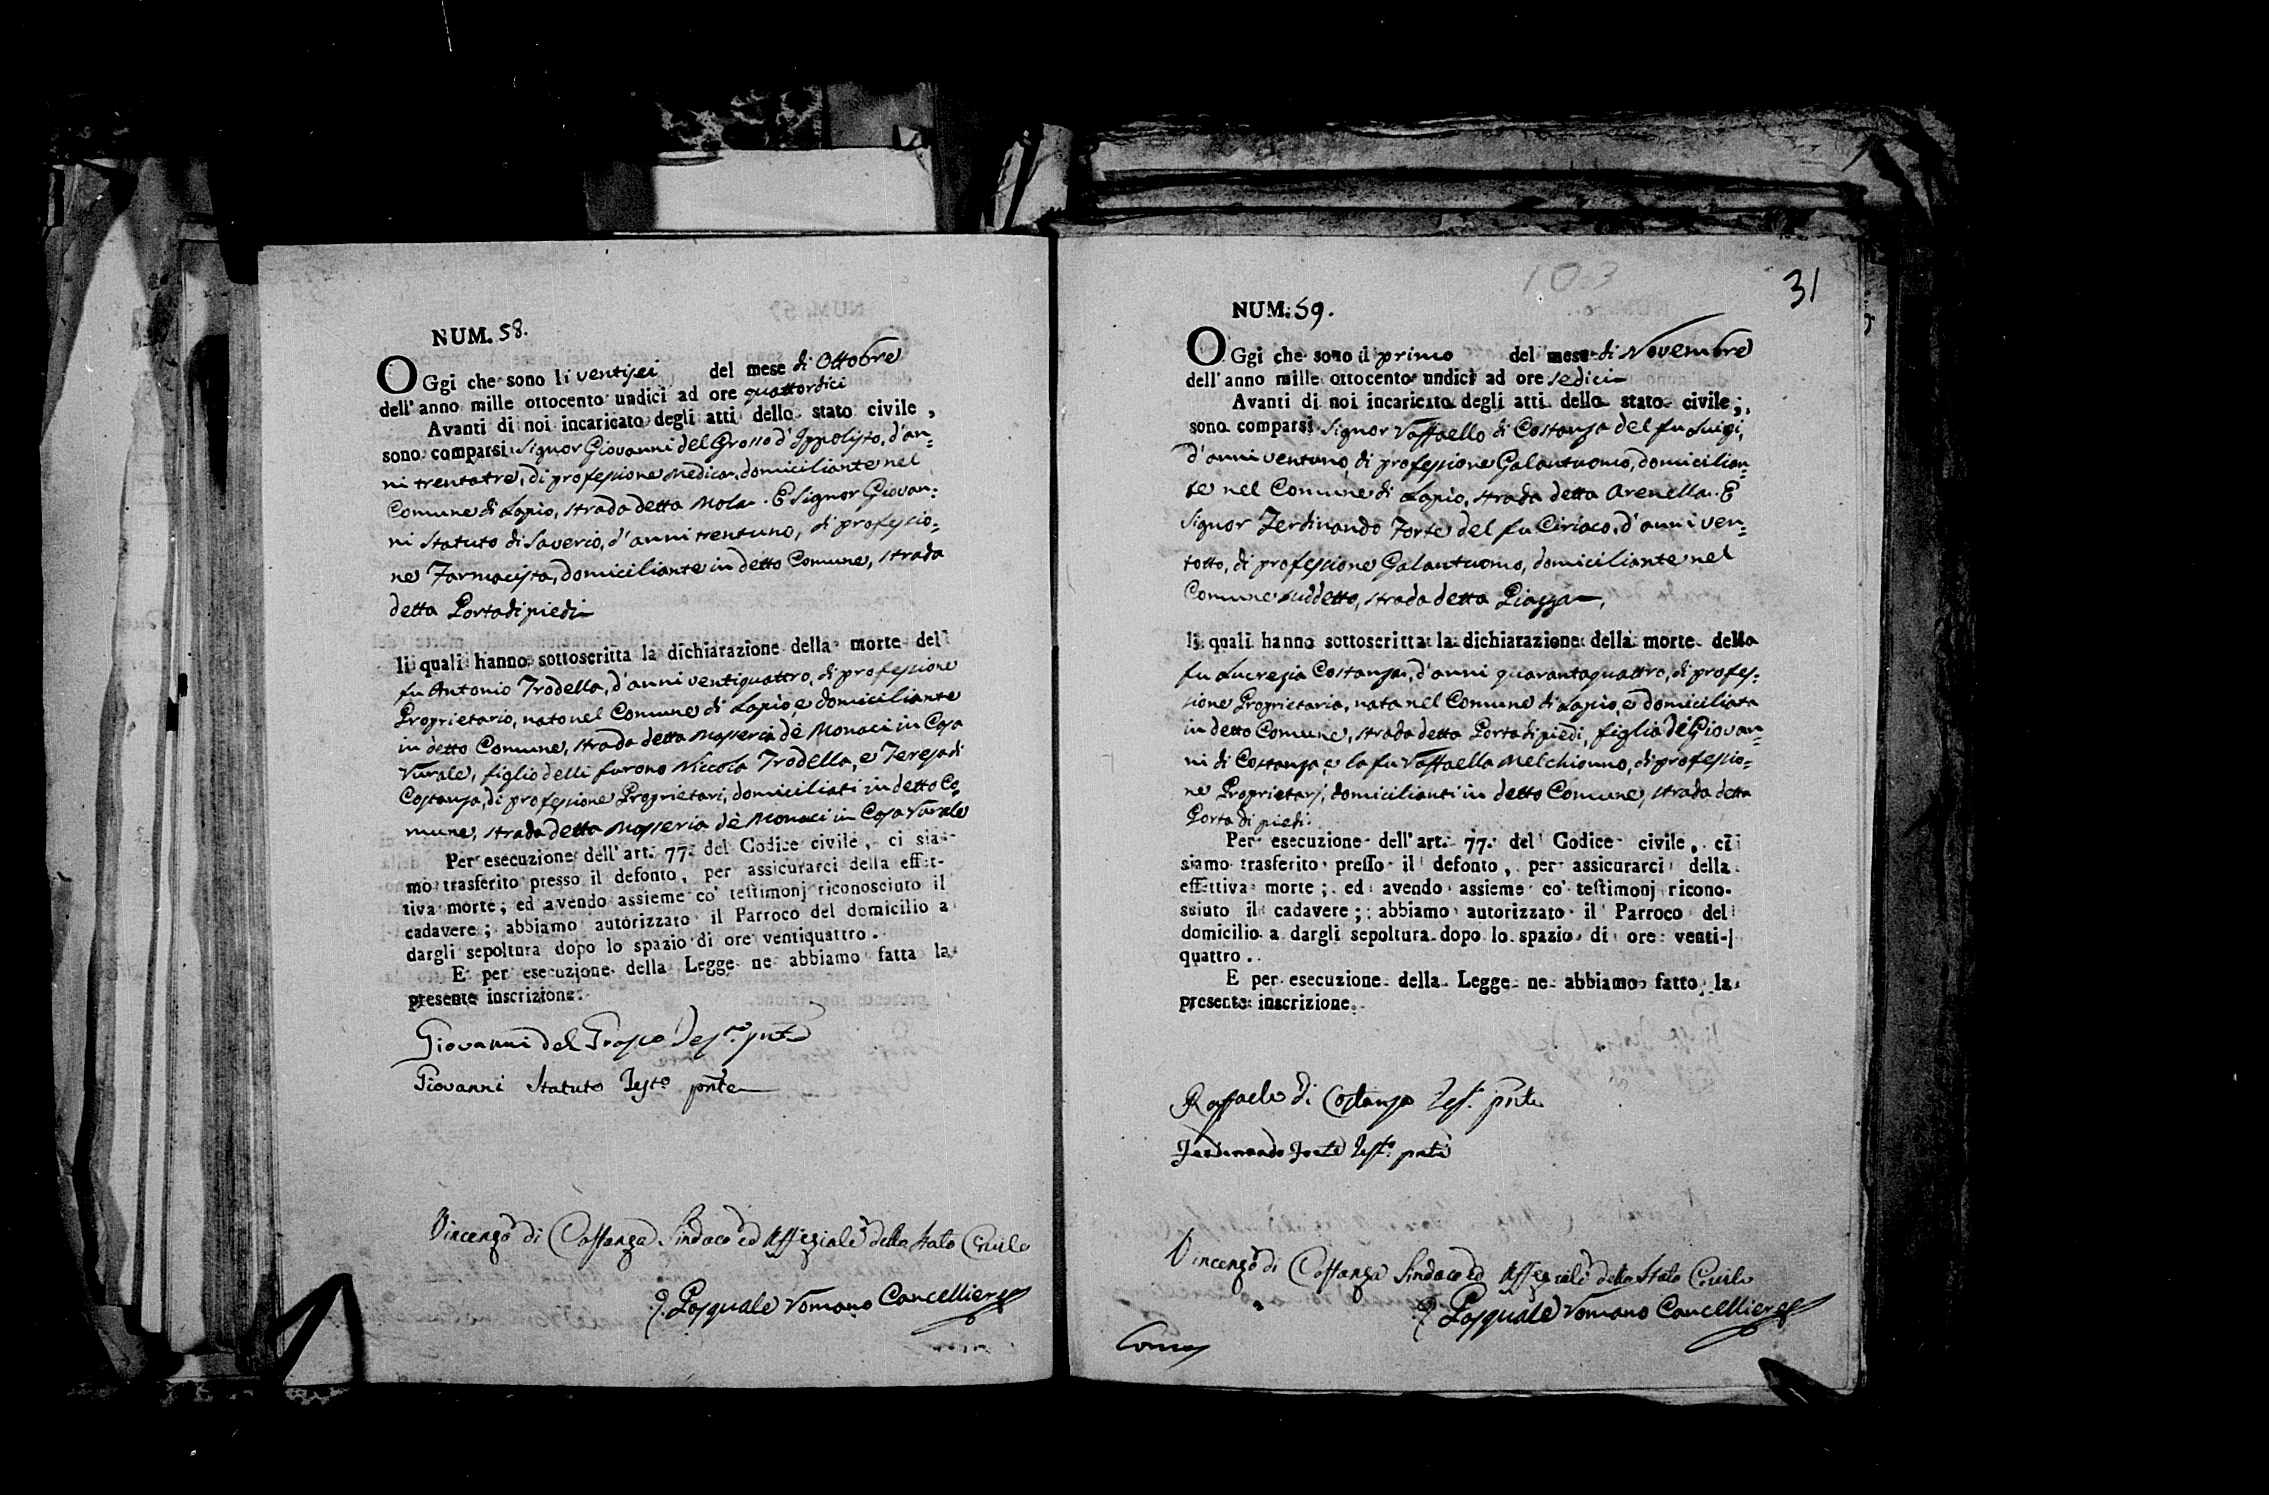 NUM. 58.
OGgi che sono li ventisei del mese di Ottobre
dell' anno mille ottocento undici ad ore quattordici
Avanti di noi incaricato degli atti dello stato civile,
sono comparsi Signor Giovanni del Grosso d'Ippolisto, d'an=
ni trentatre, di professione Medica, domiciliante nel
Comune di Lapio, strada detta Mola. E Signor Giovan=
ni Statuto di Saverio, d'anni trentuno, di professio=
ne Farmacista, domiciliante in detto Comune, strada
detta Porta di piedi
li quali hanno sottoscritta la dichiarazione della morte del
fu Antonio Trodella, d'anni ventiquattro, di professione
Proprietario, nato nel Comune di Lapio, e domiciliante
in detto Comune, strada detta Masseria de Monaci in Casa
Rurale, figlio delli furono Niccola Trodella, e Teresa di
Costanza, di professione Proprietari, domiciliati in detto Co=
mune, strada detta Masseria de Monaci in Casa Rurale
Per esecuzione dell' art. 77. del Codice civile, ci sia-
mo trasferito presso il defonto, per assicurarci della effet-
tiva morte; ed avendo assieme co' testimonj riconosciuto il
cadavere; abbiamo autorizzato il Parroco del domicilio a
dargli sepoltura dopo lo spazio di ore ventiquattro.
E per esecuzione della Legge ne abbiamo fatta la
presente inscrizione.
Giovanni del Grosso Tes.º pnte
Giovanni Statuto Testº pnte
Vincenzo di Costanza Sindaco ed Uffiziale dello Stato Civile
P. Pasquale Romano Cancelliere
103
31
NUM. 59.
OGgi che sono il primo del mese di Novembre
dell' anno mille ottocento undici ad ore sedici
Avanti di noi incaricato degli atti dello stato civile,
sono comparsi Signor Raffaello di Costanza del fu Luigi,
d'anni ventuno, di professione Galantuomo, domicilian=
te nel Comune di Lapio, strada detta Arenella. E
Signor Ferdinando Forte del fu Ciriaco, d'anni ven=
totto, di professione Galantuomo, domiciliante nel
Comune suddetto, strada detta Piazza,
li quali hanno sottoscritta la dichiarazione della morte della
fu Lucrezia Costanza, d'anni quarantaquattro, di profes=
sione Proprietaria, nata nel Comune di Lapio, e domiciliata
in detto Comune, strada detta Porta di piedi, figlia di Giovan=
ni di Costanza, e la fu Raffaella Melchionno, di professio=
ne Proprietarj, domicilianti in detto Comune, strada detta
Porta di piedi.
Per esecuzione dell' art. 77. del Codice civile, ci
siamo trasferito presso il defonto, per assicurarci della
effettiva morte; ed avendo assieme co' testimonj ricono-
sciuto il cadavere; abbiamo autorizzato il Parroco del
domicilio a dargli sepoltura dopo lo spazio di ore venti-
quattro.
E per esecuzione della Legge ne abbiamo fatto la
presente inscrizione.
Raffaele di Costanza Tes.º pnte
Ferdinando Forte Test.º pnte
Vincenzo di Costanza Sindaco ed Uffiziale dello Stato Civile
P. Pasquale Romano Cancelliere